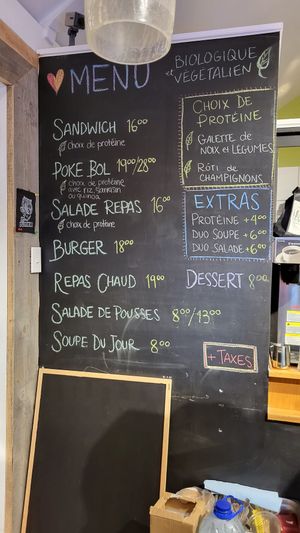 MENU
BIOLOGIQUE
et VÉGÉTALIEN
SANDWICH 16.00
choix de protéine
POKE BOL 19.00/28.00
choix de protéine
avec riz, sarrasin
ou quinoa
SALADE REPAS 16.00
choix de protéine
BURGER 18.00
REPAS CHAUD 19.00
SALADE DE POUSSES 8.00/13.00
SOUPE DU JOUR 8.00
CHOIX DE
PROTÉINE
GALETTE DE
NOIX ET LÉGUMES
RÔTI DE
CHAMPIGNONS
EXTRAS
PROTÉINE +4.00
DUO SOUPE +6.00
DUO SALADE +6.00
DESSERT 8.00
+ TAXES